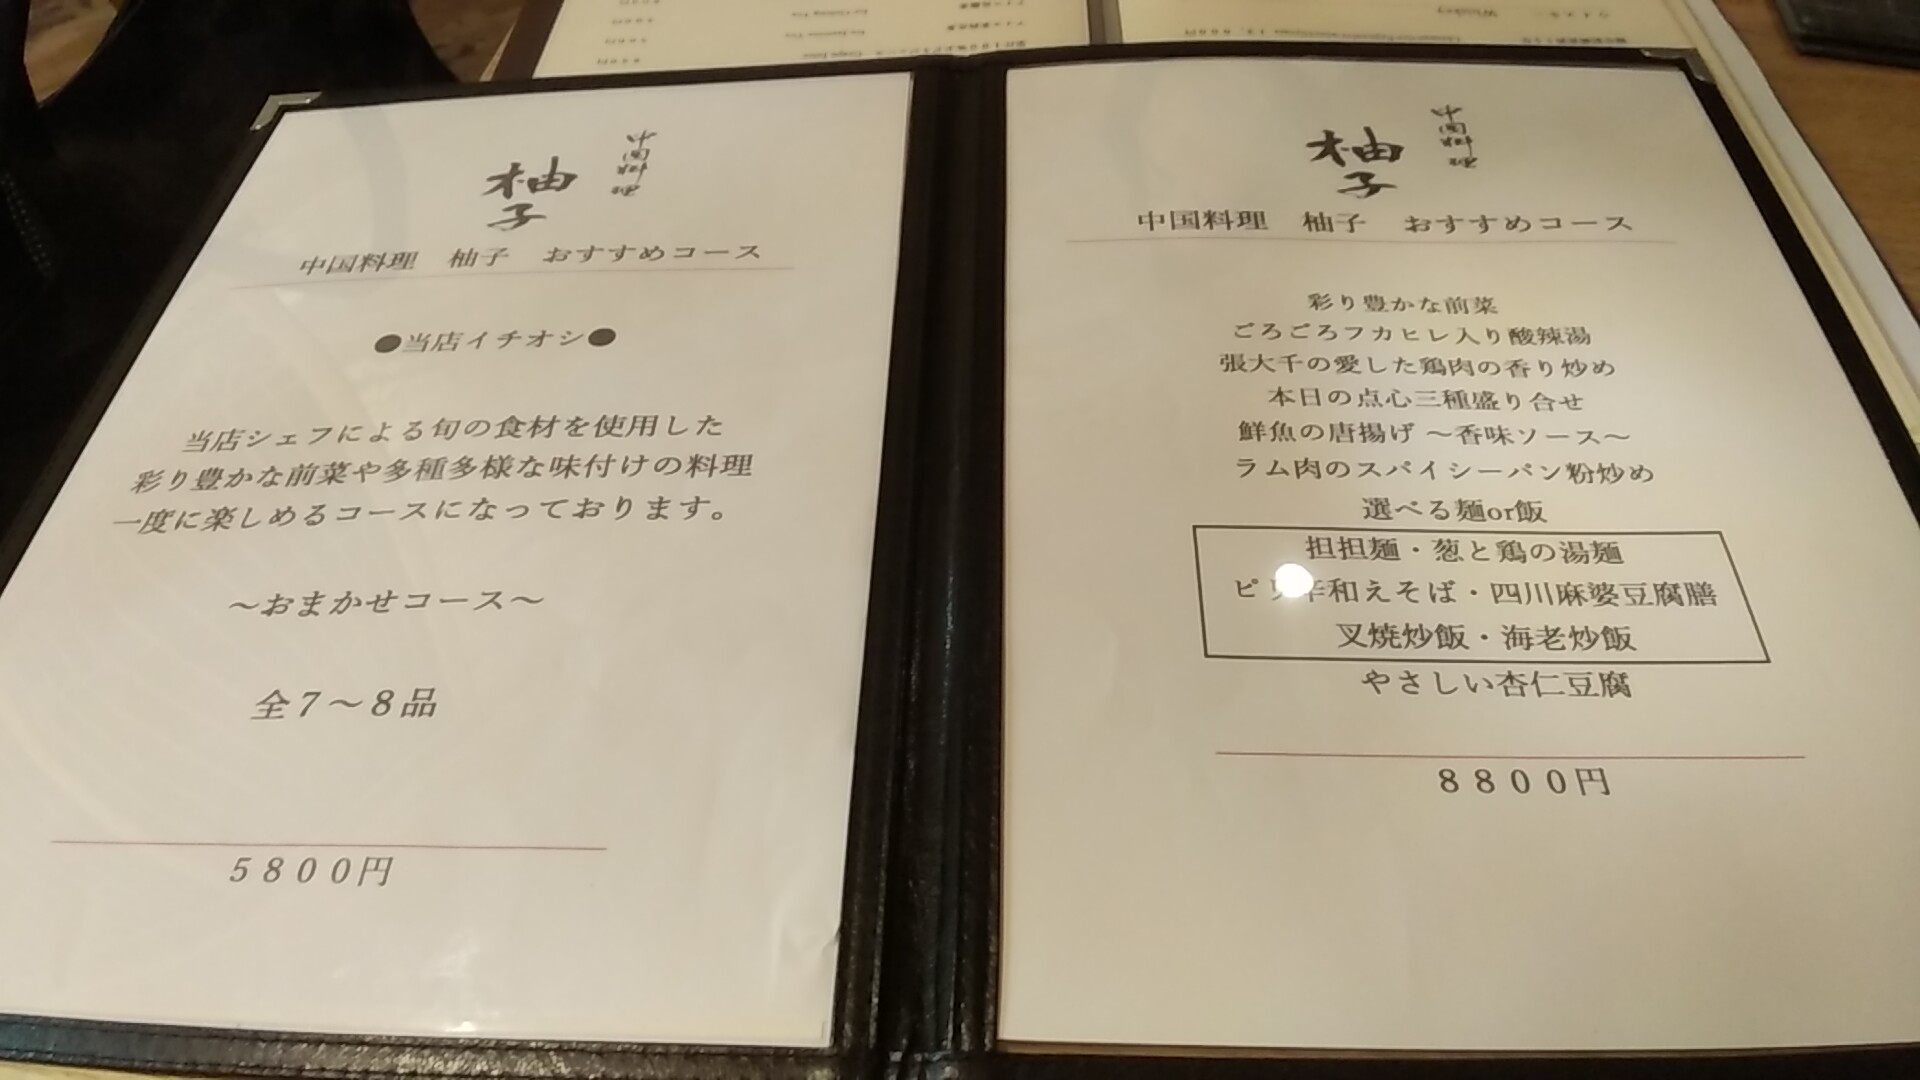 中国料理
柚子
中国料理 柚子 おすすめコース
●当店イチオシ●
当店シェフによる旬の食材を使用した
彩り豊かな前菜や多種多様な味付けの料理
一度に楽しめるコースになっております。
～おまかせコース～
全7～8品
5800円
中国料理
柚子
中国料理 柚子 おすすめコース
彩り豊かな前菜
ごろごろフカヒレ入り酸辣湯
張大千の愛した鶏肉の香り炒め
本日の点心三種盛り合せ
鮮魚の唐揚げ ～香味ソース～
ラム肉のスパイシーパン粉炒め
選べる麺or飯
担担麺・葱と鶏の湯麺
ピリ辛和えそば・四川麻婆豆腐膳
叉焼炒飯・海老炒飯
やさしい杏仁豆腐
8800円